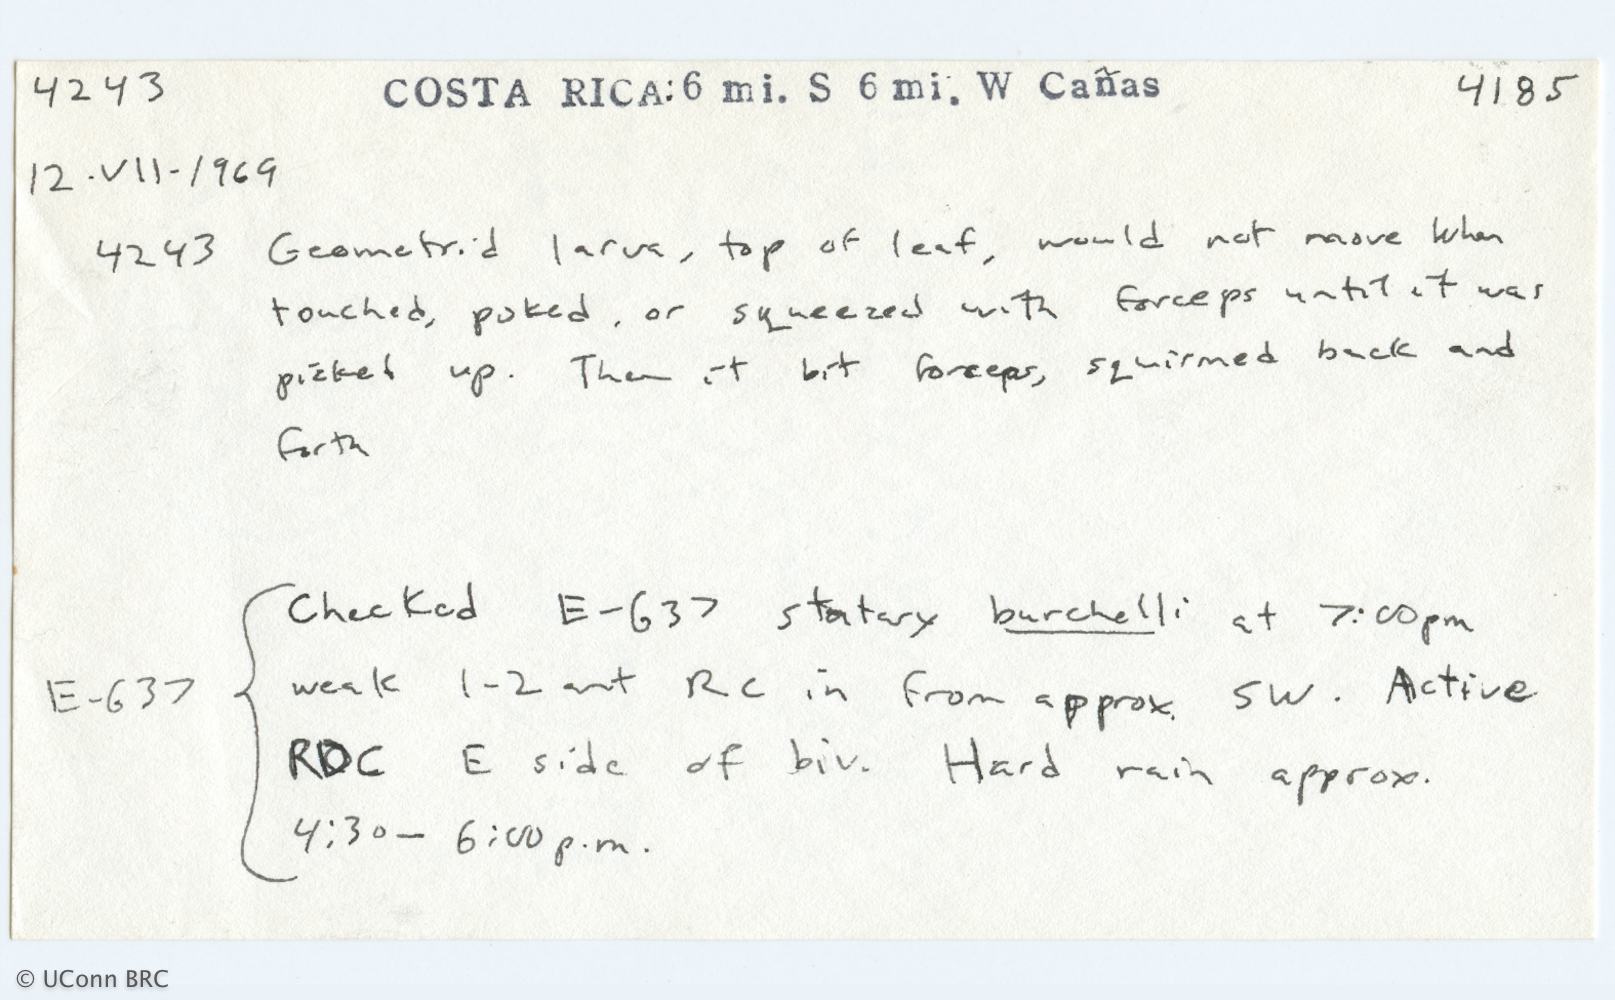 4243 COSTA RICA: 6 mi. S 6 mi. W Cañas 4185
12-VII-1969
4243 Geometrid larva, top of leaf, would not move when
touched, poked, or squeezed with forceps until it was
picked up. Then it bit forceps, squirmed back and
forth
Checked E-637 statary burchelli at 7:00pm
E-637 weak 1-2 ant RC in from approx. SW. Active
RDC E side of biv. Hard rain approx.
4:30- 6:00 p.m.
© UConn BRC